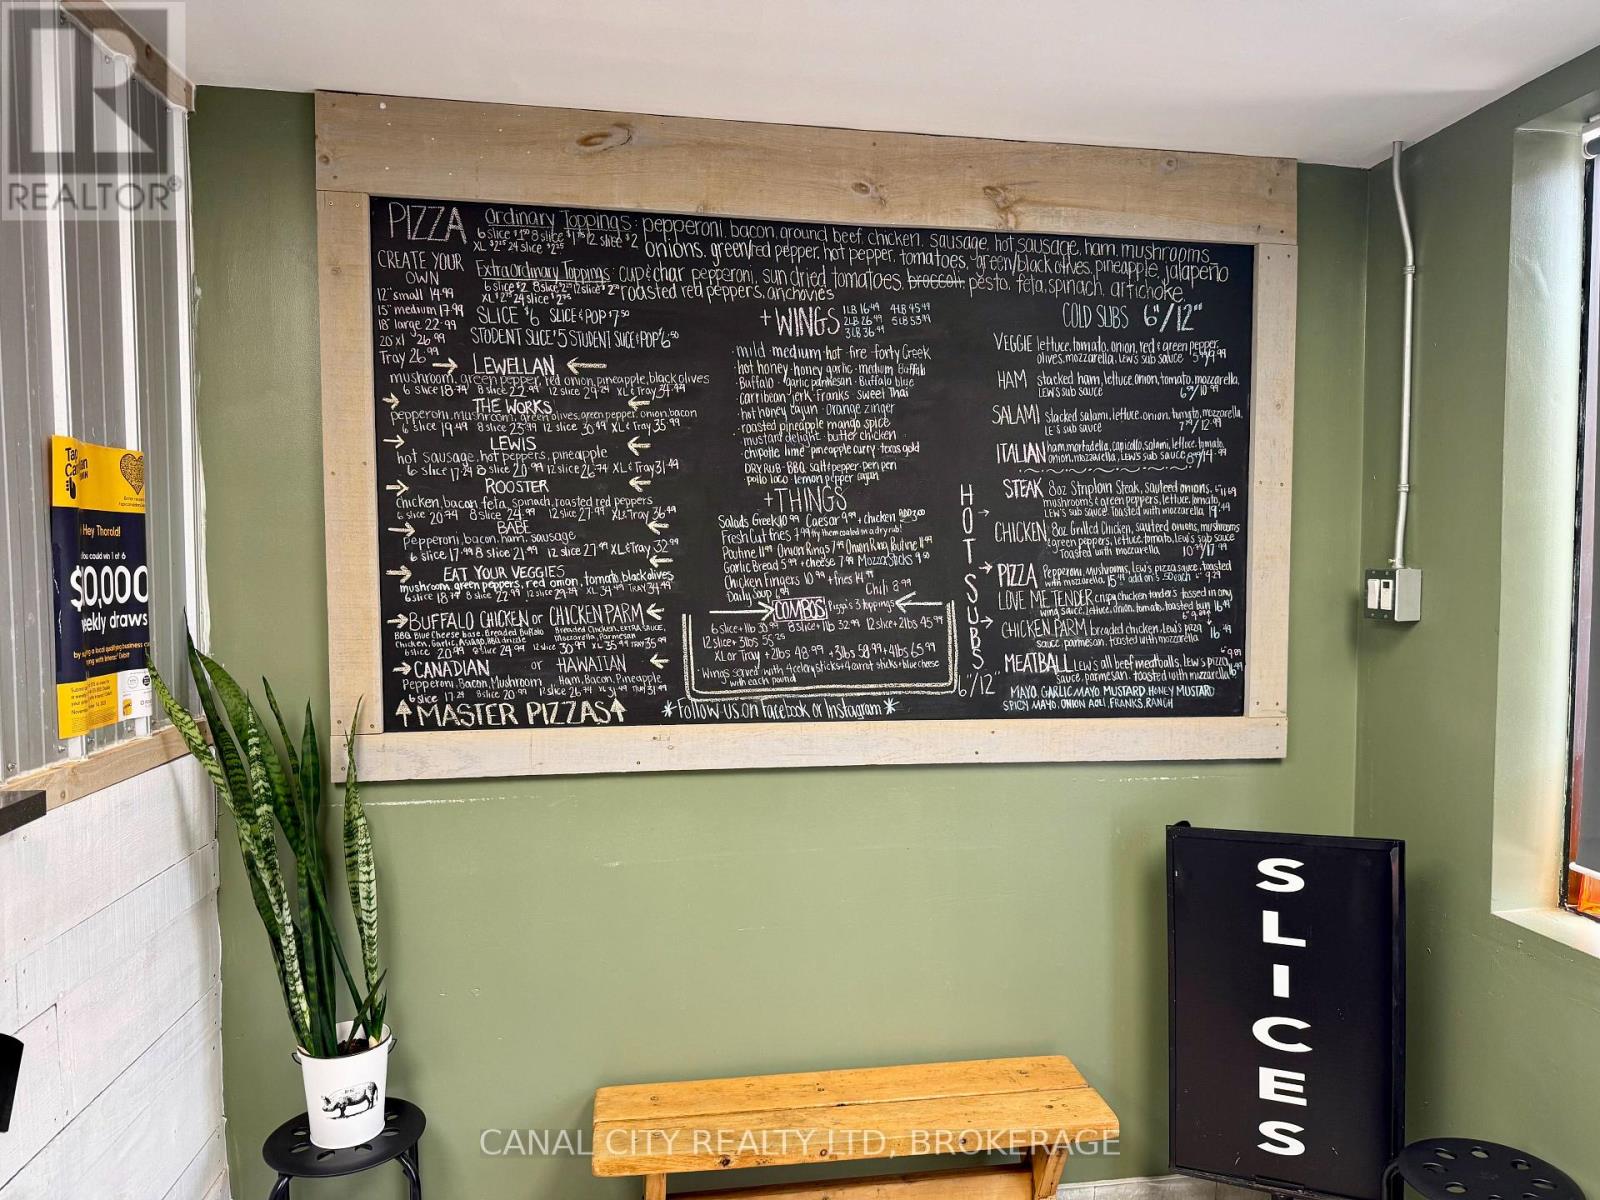 REALTOR®
PIZZA
Ordinary Toppings: pepperoni, bacon, ground beef, chicken, sausage, hot sausage, ham, mushrooms,
6 slice $1.50 8 slice $1.75 12 slice $2
XL $2.25 24 slice $2.25
onions, green/red pepper, hot pepper, tomatoes, green/black olives, pineapple, jalapeño
Extraordinary Toppings: cup & char pepperoni, sun dried tomatoes, broccoli, pesto, feta, spinach, artichoke,
6 slice $2 8 slice $2.25 12 slice $2.50
XL $2.75 24 slice $2.75
roasted red peppers, anchovies
CREATE YOUR
OWN
12" small 14.99
15" medium 17.99
18" large 22.99
20 xl 26.99
Tray 26.99
SLICE $6 SLICE & POP $7.50
STUDENT SLICE $5 STUDENT SLICE & POP $6.50
LEWELLAN
mushroom, green pepper, red onion, pineapple, black olives
6 slice 18.74 8 slice 22.99 12 slice 29.24 XL & Tray 34.49
THE WORKS
pepperoni, mushroom, green olives, green pepper, onion, bacon
6 slice 19.49 8 slice 23.99 12 slice 30.49 XL & Tray 35.99
LEWIS
hot sausage, hot peppers, pineapple
6 slice 17.24 8 slice 20.99 12 slice 26.74 XL & Tray 31.49
ROOSTER
Chicken, bacon, feta, spinach, roasted red peppers
6 slice 20.74 8 slice 24.99 12 slice 27.99 XL & Tray 36.49
BABE
Pepperoni, bacon, ham, sausage
6 slice 17.99 8 slice 21.99 12 slice 27.99 XL & Tray 32.99
EAT YOUR VEGGIES
mushroom, green peppers, red onion, tomato, black olives
6 slice 18.74 8 slice 22.99 12 slice 29.24 XL & Tray 34.49
BUFFALO CHICKEN or CHICKEN PARM
BBQ, Blue Cheese base, Breaded Buffalo
Breaded Chicken, EXTRA SAUCE,
Mozzarella, Parmesan
6 slice 20.99 8 slice 24.99 12 slice 30.99 XL 35.99 TRAY 35.99
CANADIAN or HAWAIIAN
Pepperoni, Bacon, Mushroom Ham, Bacon, Pineapple
6 slice 17.24 8 slice 20.99 12 slice 26.74 XL 31.49 TRAY 31.49
MASTER PIZZAS
+ WINGS
1LB 16.49 4LB 45.49
2LB 26.49 5LB 53.99
3LB 36.49
· mild · medium · hot · fire · forty Creek
· hot honey · honey garlic · medium Buffalo
· Buffalo · garlic parmesan · Buffalo blue
· carribean jerk · Franks · sweet Thai
· hot honey cajun · orange zinger
· roasted pineapple mango spice
· mustard delight · butter chicken
· chipotle lime · pineapple curry · texas gold
DRY RUB · BBQ · salt & pepper · peri peri
· pollo loco · lemon pepper · cajun
+ THINGS
Salads Greek 10.99 Caesar 9.99 + chicken ADD 3.00
Fresh Cut fries 7.99 try them coated in a dry rub!
Poutine 11.99 Onion Rings 7.99 Onion Ring Poutine 11.99
Garlic Bread 5.99 + cheese 7.99 Mozza Sticks 9.50
Chicken Fingers 10.99 + fries 14.99
Daily Soup 6.99 Chili 8.99
COMBOS Pizza's 3 toppings
6 slice + 1lb 30.99 8 slice + 1lb 32.99 12 slice + 2lbs 45.99
12 slice + 3lbs 55.25
XL or Tray + 2lbs 48.99 + 3lbs 58.99 + 4lbs 65.99
· Wings served with 4 celery sticks + 4 carrot sticks + blue cheese
with each pound
* Follow us on Facebook or Instagram *
COLD SUBS 6"/12"
VEGGIE lettuce, tomato, onion, red & green pepper,
olives, mozzarella, LEW'S sub sauce 5.99/9.99
HAM stacked ham, lettuce, onion, tomato, mozzarella,
LEW'S sub sauce 6.99/10.99
SALAMI stacked salami, lettuce, onion, tomato, mozzarella,
LE'S sub sauce 7.99/12.99
ITALIAN ham, mortadella, capicollo, salami, lettuce, tomato,
onion, mozzarella, LEW'S sub sauce 8.99/14.99
HOT SUBS 6"/12"
STEAK 8oz Striploin Steak, sauteed onions,
mushrooms & green peppers, lettuce, tomato,
LEW'S sub sauce. Toasted with mozzarella 19.49
CHICKEN 8oz Grilled Chicken, sauteed onions, mushrooms
& green peppers, lettuce, tomato, LEW'S sub sauce
Toasted with mozzarella 10.99/17.99
PIZZA Pepperoni, Mushrooms, Lew's pizza sauce, toasted
with mozzarella 15.49 add on's .50 each 9.29
LOVE ME TENDER crispy chicken tenders tossed in any
wing sauce, lettuce, onion, tomato, toasted bun 16.49
CHICKEN PARM breaded chicken, LEW'S pizza
sauce, parmesan, toasted with mozzarella 16.49
MEATBALL LEW'S all beef meatballs, lew's pizza
sauce, parmesan, toasted with mozzarella 16.99
MAYO, GARLIC MAYO, MUSTARD, HONEY MUSTARD
SPICY MAYO, ONION AOLI, FRANKS, RANCH
Hey Thorold!
You could win 1 of 6
$10,000
weekly draws
SLICES
CANAL CITY REALTY LTD, BROKERAGE